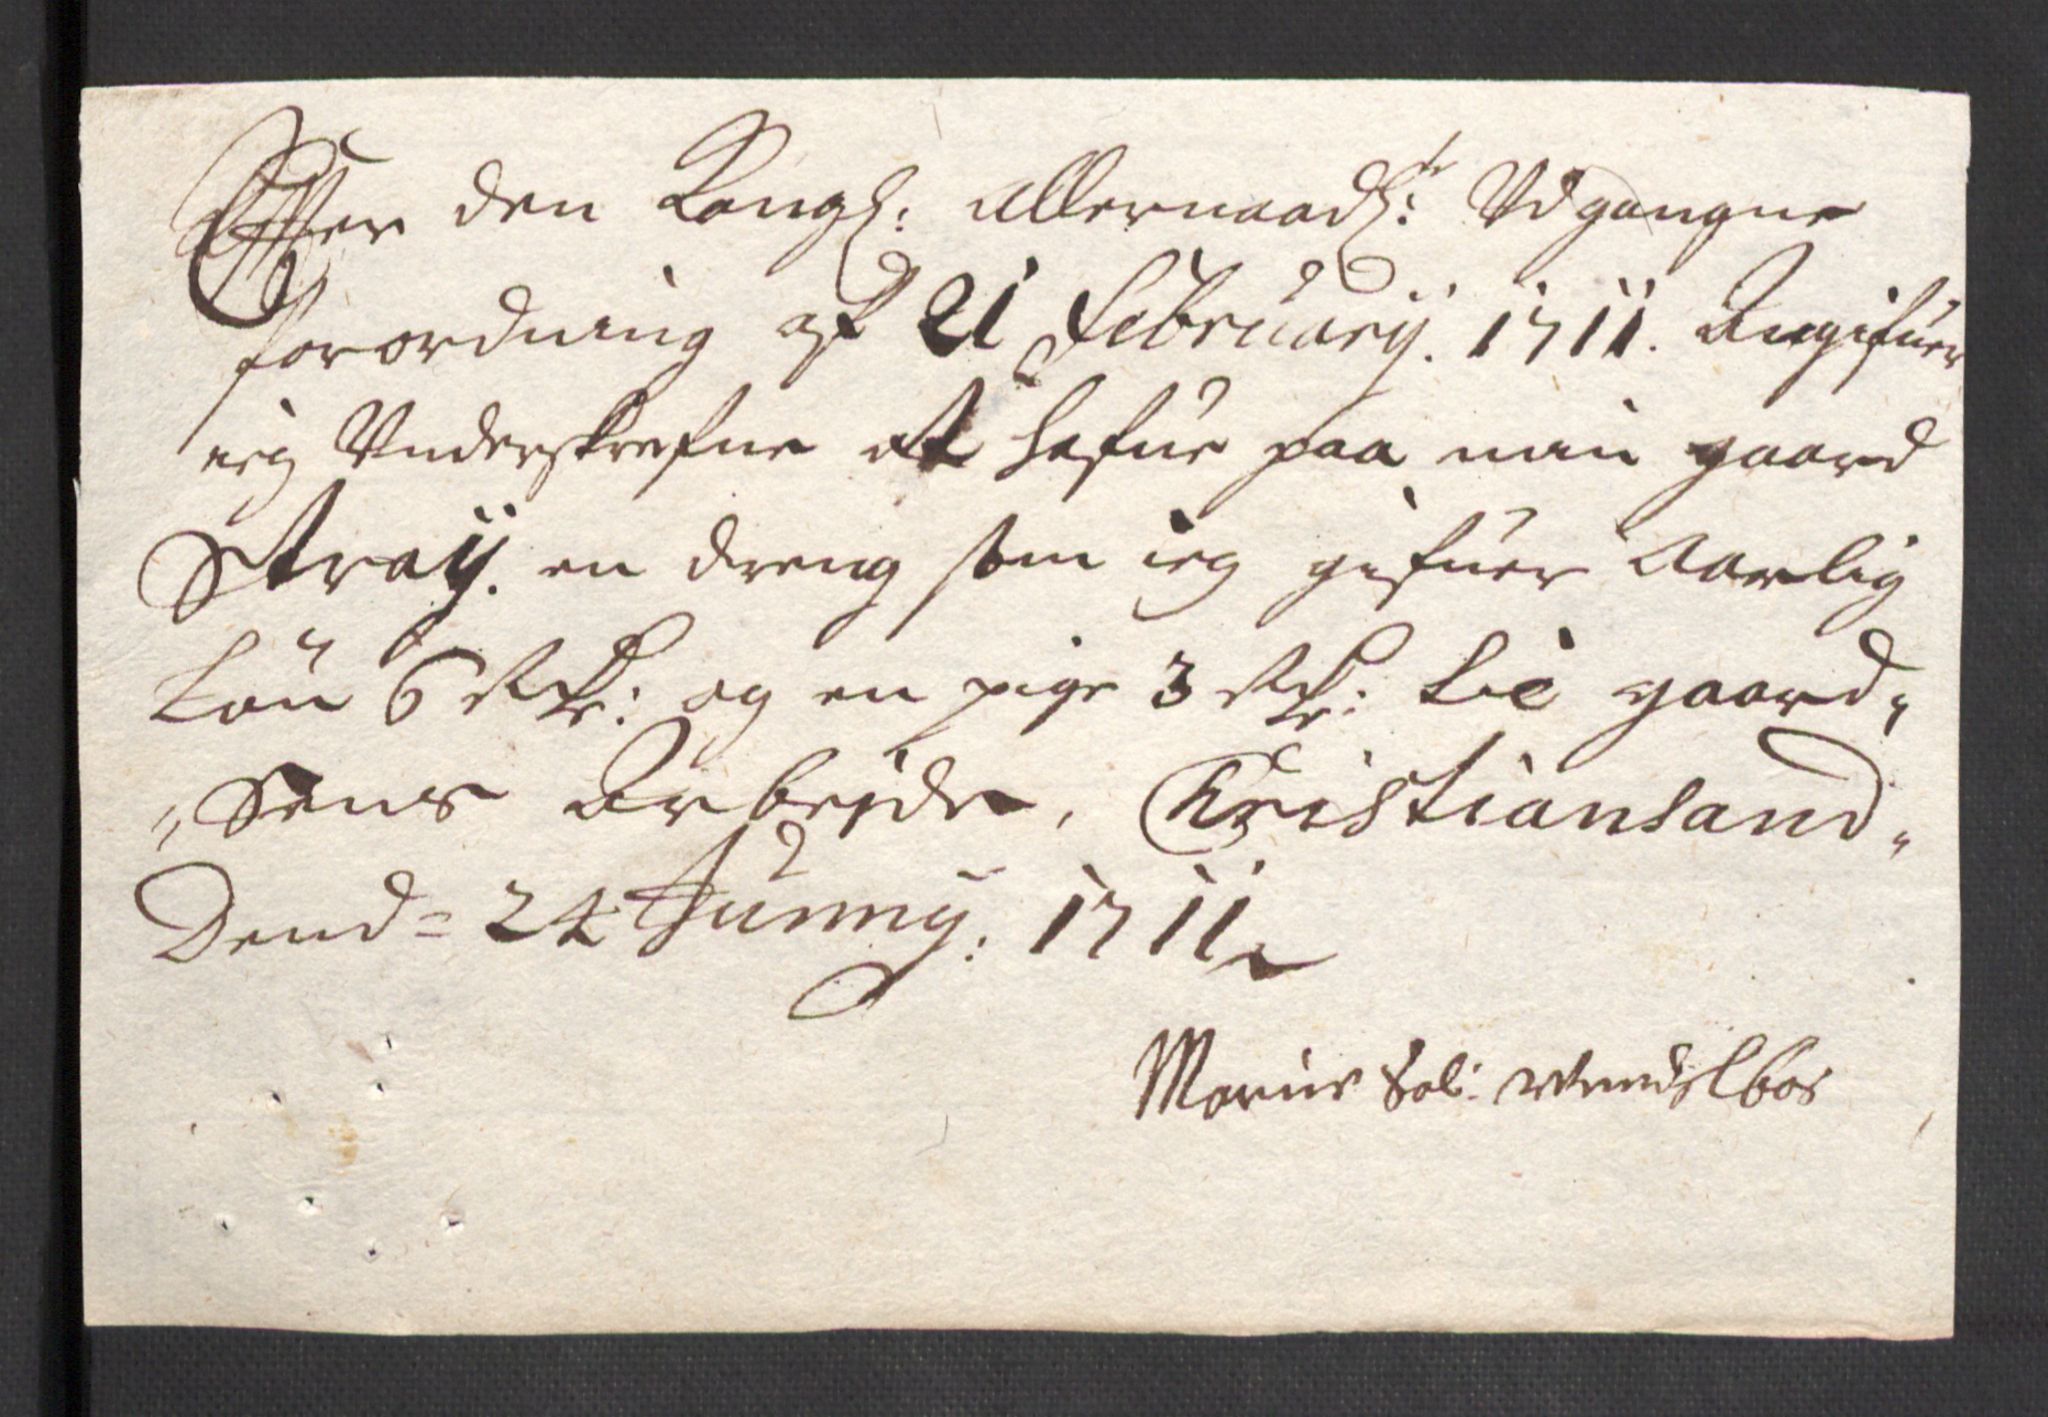 Effter den Kongl: allernaadl:te Udgangne
forordning af 21 februarij. 1711. Angifuer
ieg Underskrefne at hafue paa min gaard
Straij. en dreng som ieg gifuer Aarlig
Løn 6 Rdr: og en pige 3 Rdr: til gaard„
„sens Arbejde, Christiansand„
Dend = 24 Junny: 1711
Marie Sal: Wendelboes